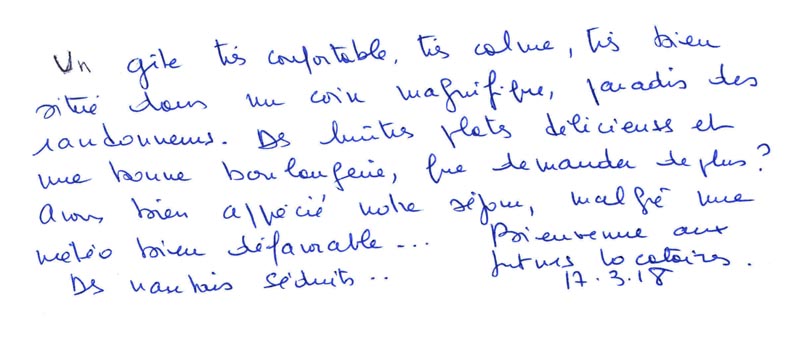 Un gîte très confortable, très calme, très bien
situé dans un coin magnifique, paradis des
randonneurs. Des huîtres plates délicieuses et
une bonne boulangerie, que demander de plus ?
Avons bien apprécié notre séjour, malgré une
météo bien défavorable...
Des nantais séduits..
Bienvenue aux
futurs locataires.
17.3.18